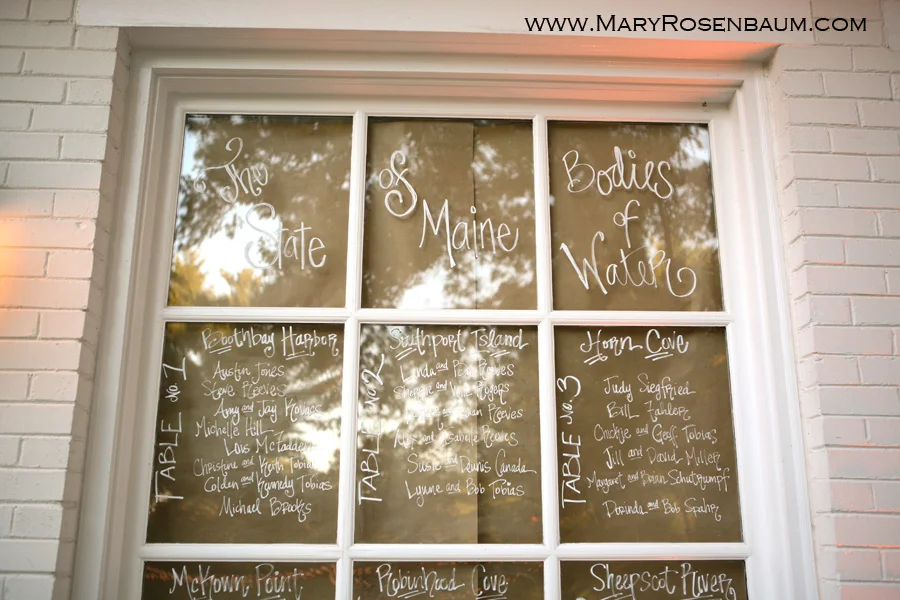 www.MaryRosenbaum.com
The
State
of
Maine
Bodies
of
Water
TABLE No. 1
Boothbay Harbor
Austin Jones
Steve Reeves
Amy and Jay Kovacs
Michelle Hill
Lois McFadden
Christine and Keith Tobias
Colden and Kennedy Tobias
Michael Brooks
TABLE No. 2
Southport Island
Linda and Reeves
and Rogers
and Reeves
and Isabelle Reeves
Susie and Dennis Canada
Lynne and Bob Tobias
TABLE No. 3
Horn Cove
Judy Siegfried
Bill Fahler
Chickie and Geoff Tobias
Jill and David Miller
Margaret and Brian Schutrumpf
Dorinda and Bob Spahr
McKown Point
Robinhood Cove
Sheepscot River